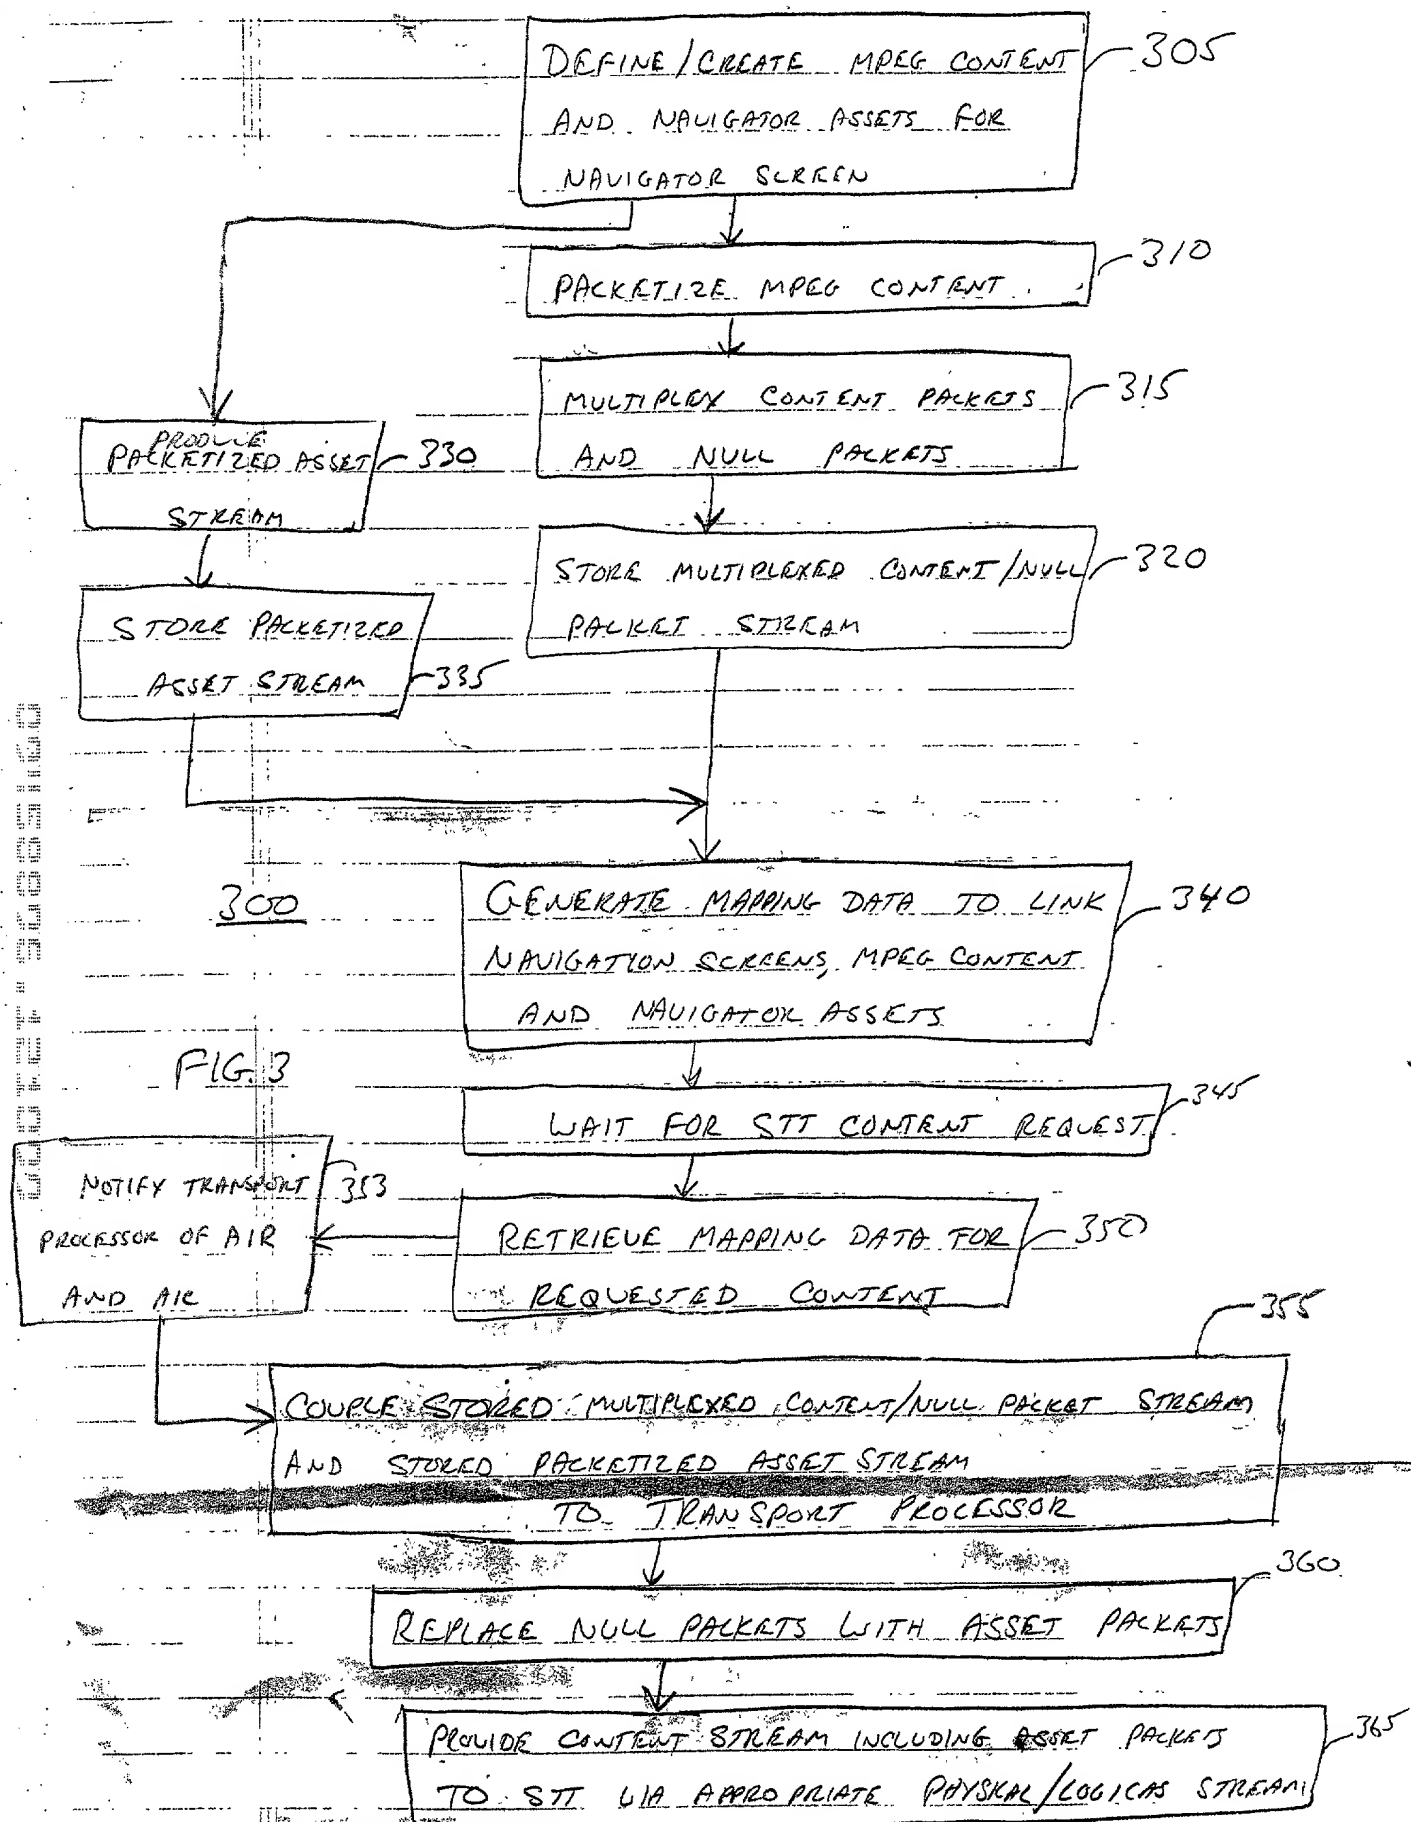 DEFINE/CREATE MPEG CONTENT
AND NAVIGATOR ASSETS FOR
NAVIGATOR SCREEN
305
PACKETIZE MPEG CONTENT
310
MULTIPLEX CONTENT PACKETS
AND NULL PACKETS
315
PRODUCE
PACKETIZED ASSET
STREAM
330
STORE MULTIPLEXED CONTENT/NULL
PACKET STREAM
320
STORE PACKETIZED
ASSET STREAM
335
300
GENERATE MAPPING DATA TO LINK
NAVIGATION SCREENS, MPEG CONTENT
AND NAVIGATOR ASSETS
340
FIG. 3
WAIT FOR STT CONTENT REQUEST
345
NOTIFY TRANSPORT
PROCESSOR OF AIR
AND AIR
353
RETRIEVE MAPPING DATA FOR
REQUESTED CONTENT
350
355
COUPLE STORED MULTIPLEXED CONTENT/NULL PACKET STREAM
AND STORED PACKETIZED ASSET STREAM
TO TRANSPORT PROCESSOR
REPLACE NULL PACKETS WITH ASSET PACKETS
360
PROVIDE CONTENT STREAM INCLUDING ASSET PACKETS
TO STT VIA APPROPRIATE PHYSICAL/LOGICAL STREAM
365